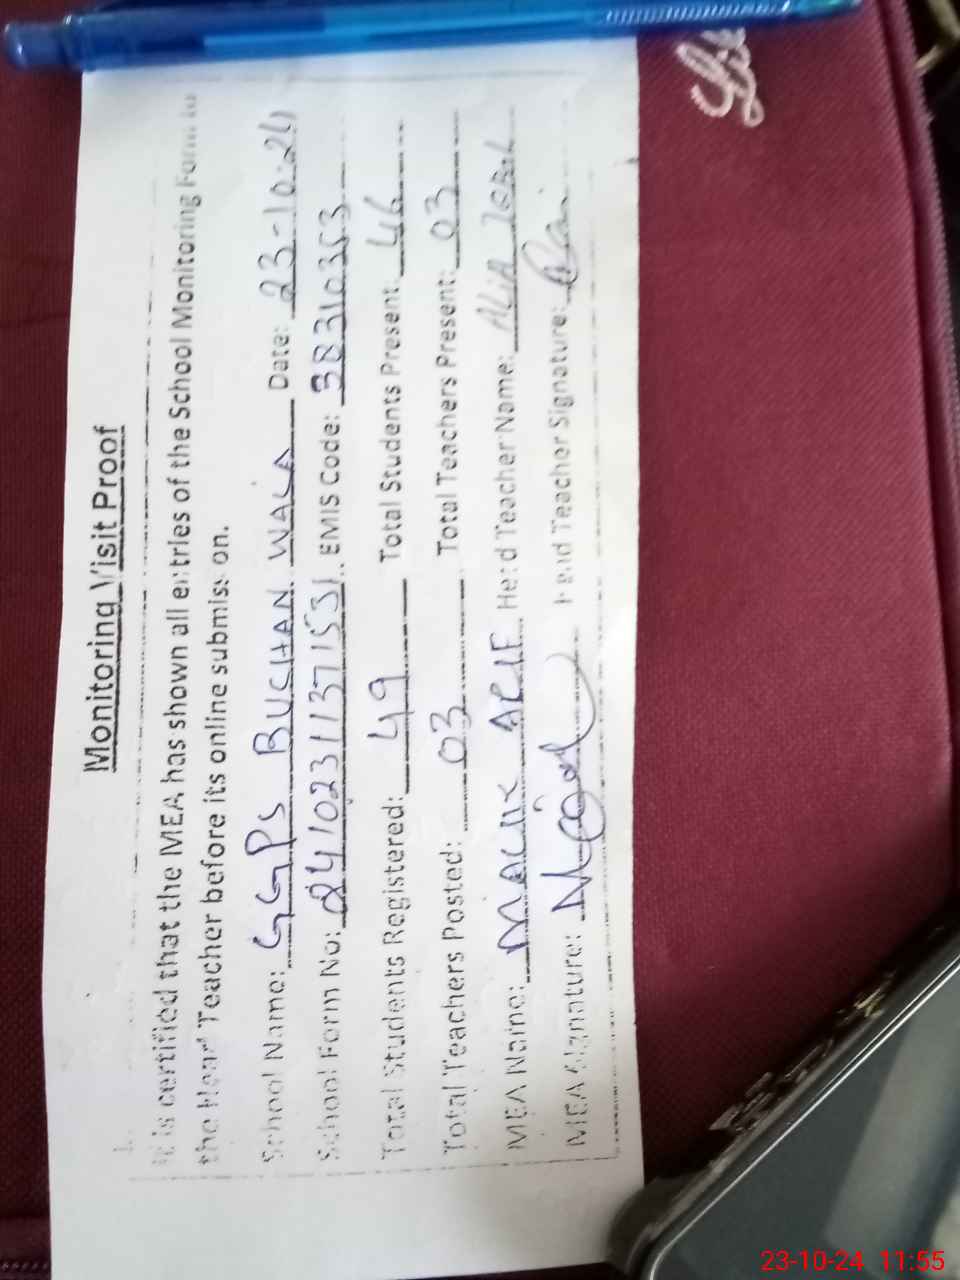 Monitoring Visit Proof
It is certified that the MEA has shown all entries of the School Monitoring Form to
the Head Teacher before its online submission.
School Name: GGPS BUCHAN WALA Date: 23-10-24
School Form No: 24102311371531 EMIS Code: 38310353
Total Students Registered: 49 Total Students Present: 46
Total Teachers Posted: 03 Total Teachers Present: 03
MEA Name: MALIK ACIF Head Teacher Name: ALIA
MEA Signature: Head Teacher Signature:
23-10-24 11:55